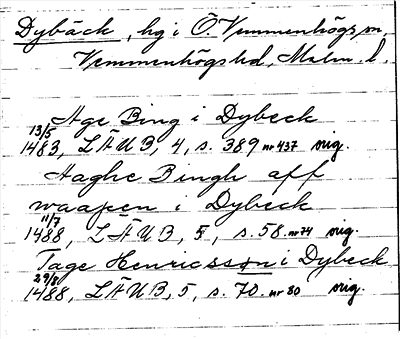 Dybäck, hg i Ö. Vemmenhögs sn,
Vemmenhögs hd, Malm. l.
Åge Bing i Dybeck
13/5 1483, LÄUB, 4, s. 389 nr 437 orig.
Aaghe Bingh aff
waapen i Dybeck
11/7 1488, LÄUB, 5, s. 58. nr 74 orig.
Tage Henricsson i Dybeck
29/8 1488, LÄUB, 5, s. 70. nr 80 orig.